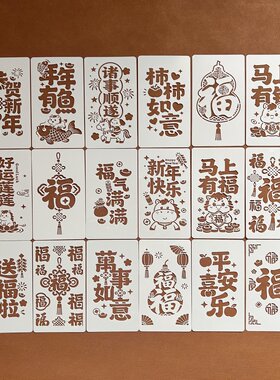 恭贺
新年
年年
有鱼
诸事
顺遂
柿柿
如意
福
马上
有
好运
莲莲
福
福气
满满
新年
快乐
马上
有福
福
送
福啦
福
福
福
福
福
萬事
如意
福
福
平安
喜乐
福
福
福